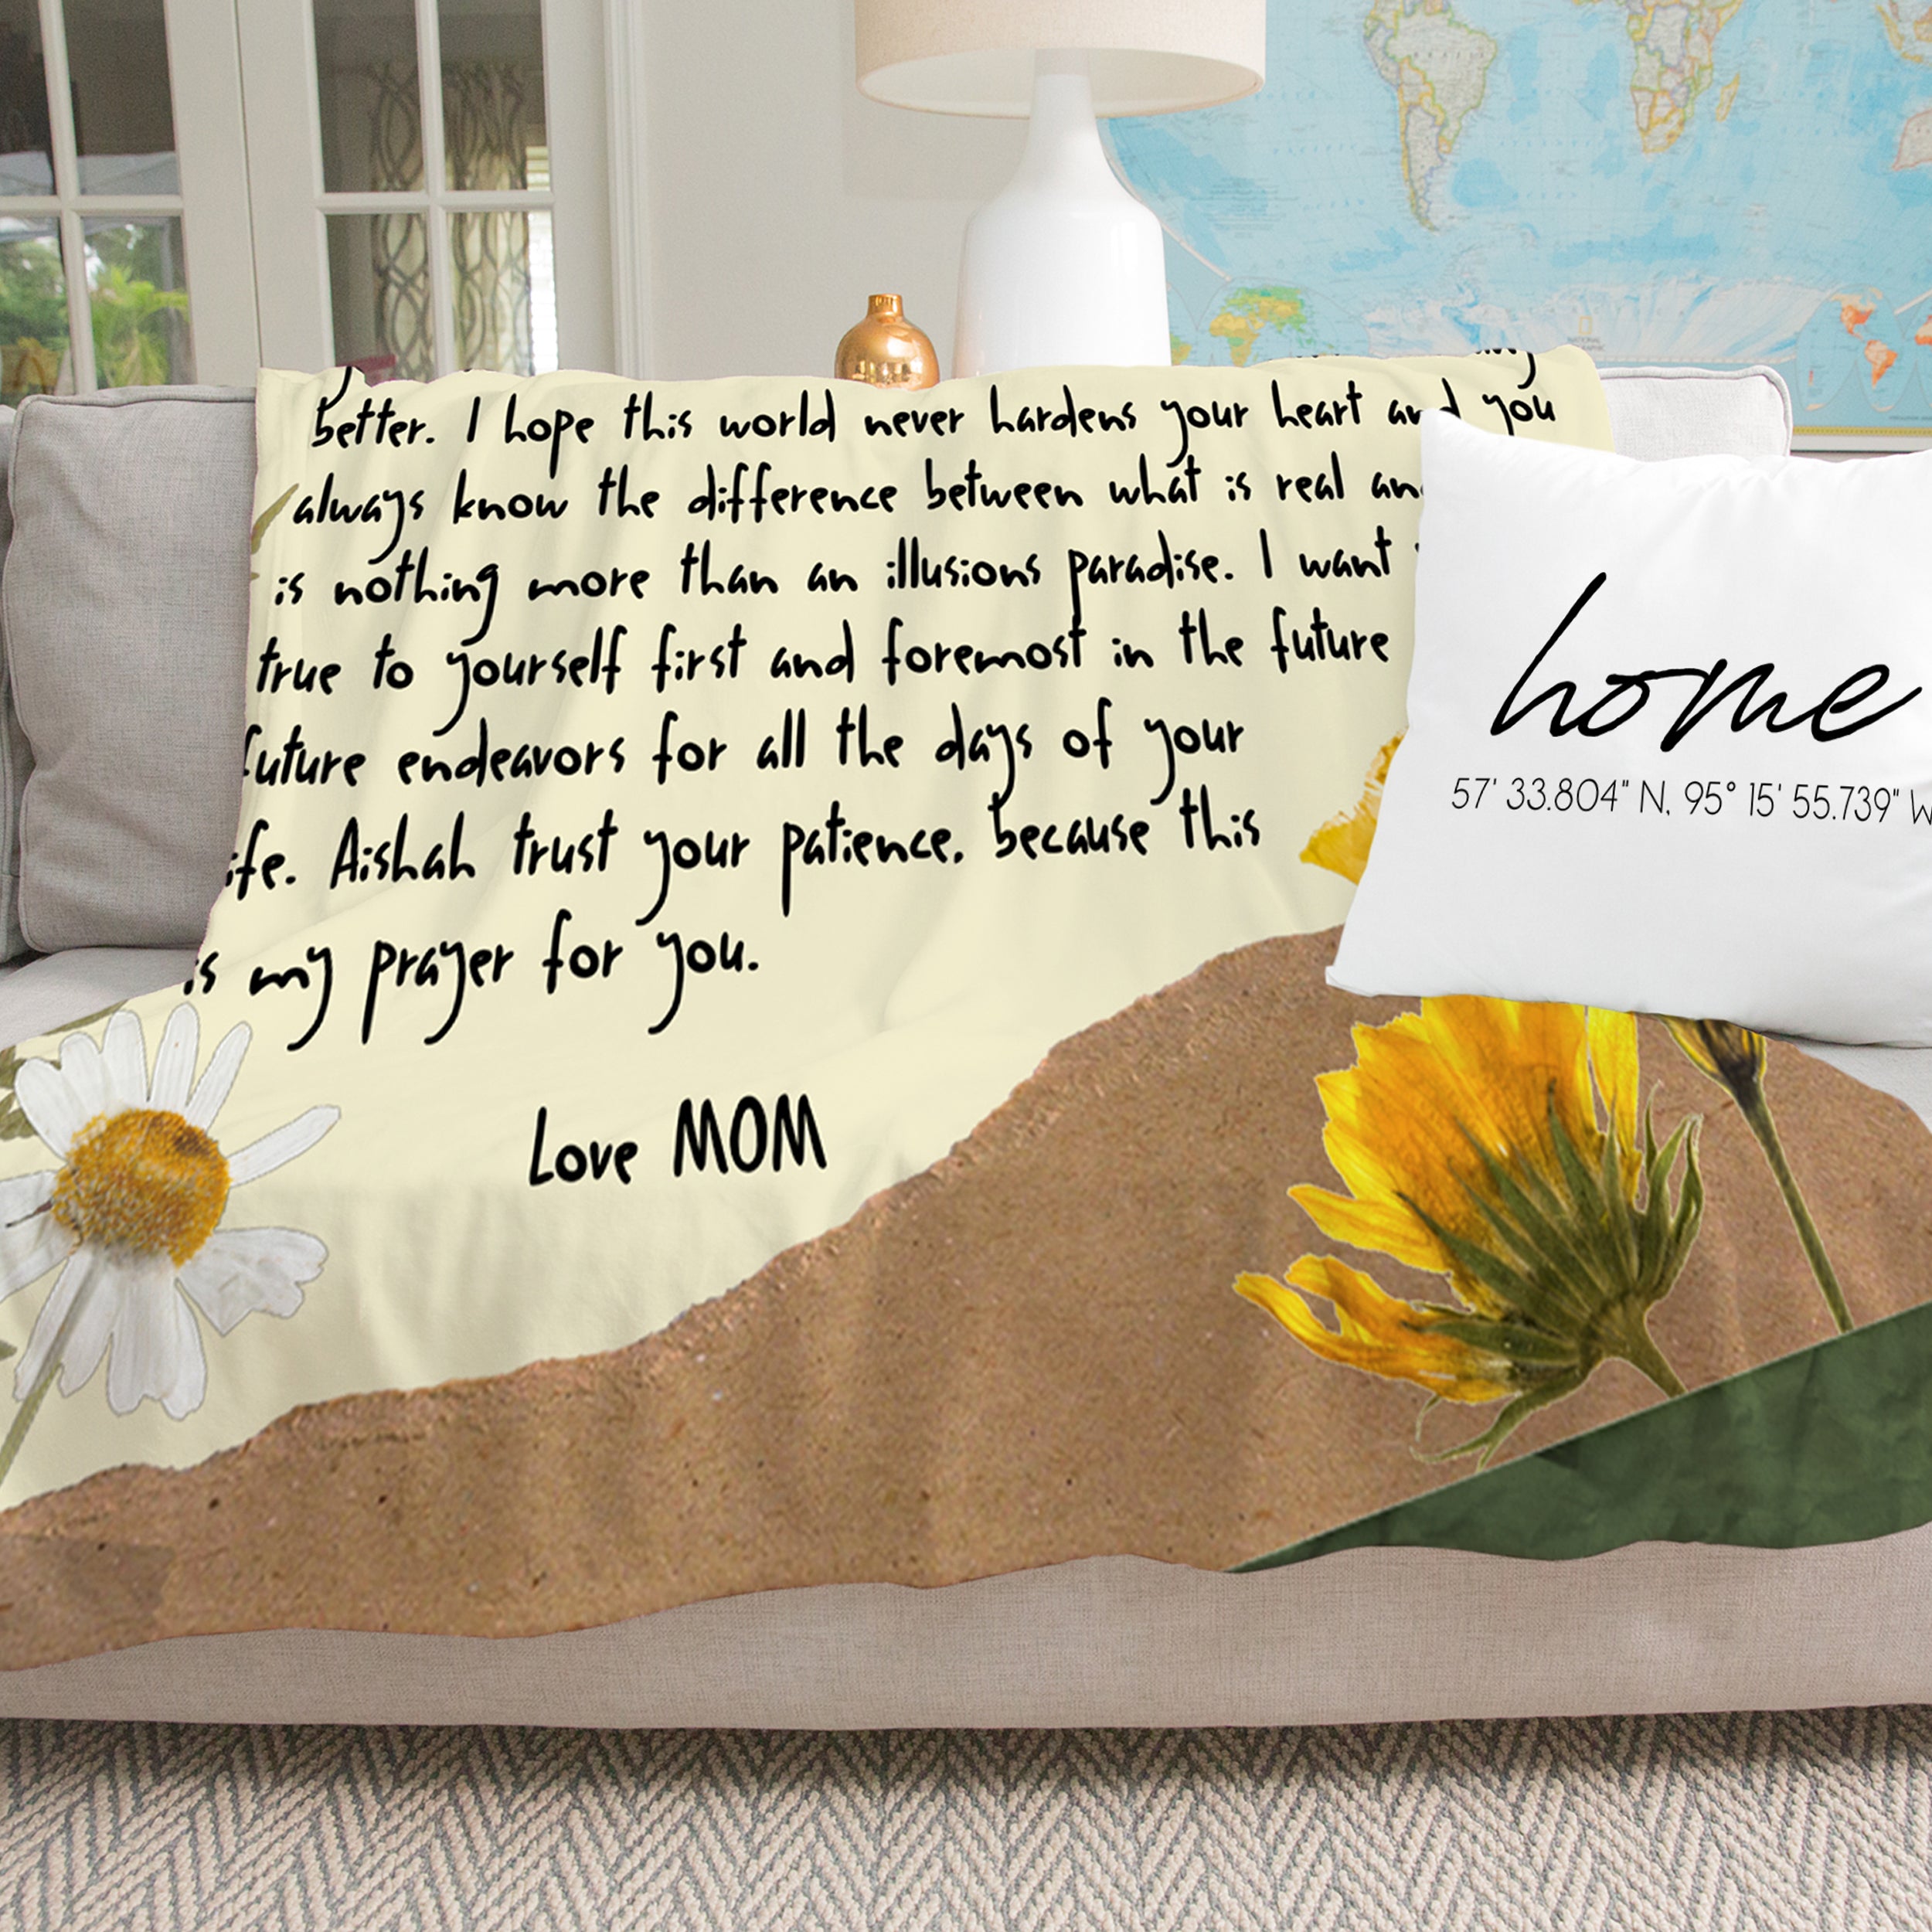 better. I hope this world never hardens your heart and you
always know the difference between what is real an
is nothing more than an illusions paradise. I want
true to yourself first and foremost in the future
future endeavors for all the days of your
ife. Aishah trust your patience. because this
is my prayer for you.
Love MOM
home
57' 33.804" N, 95° 15' 55.739" W
BRAZIL
NATIONAL
GEOGRAPHIC